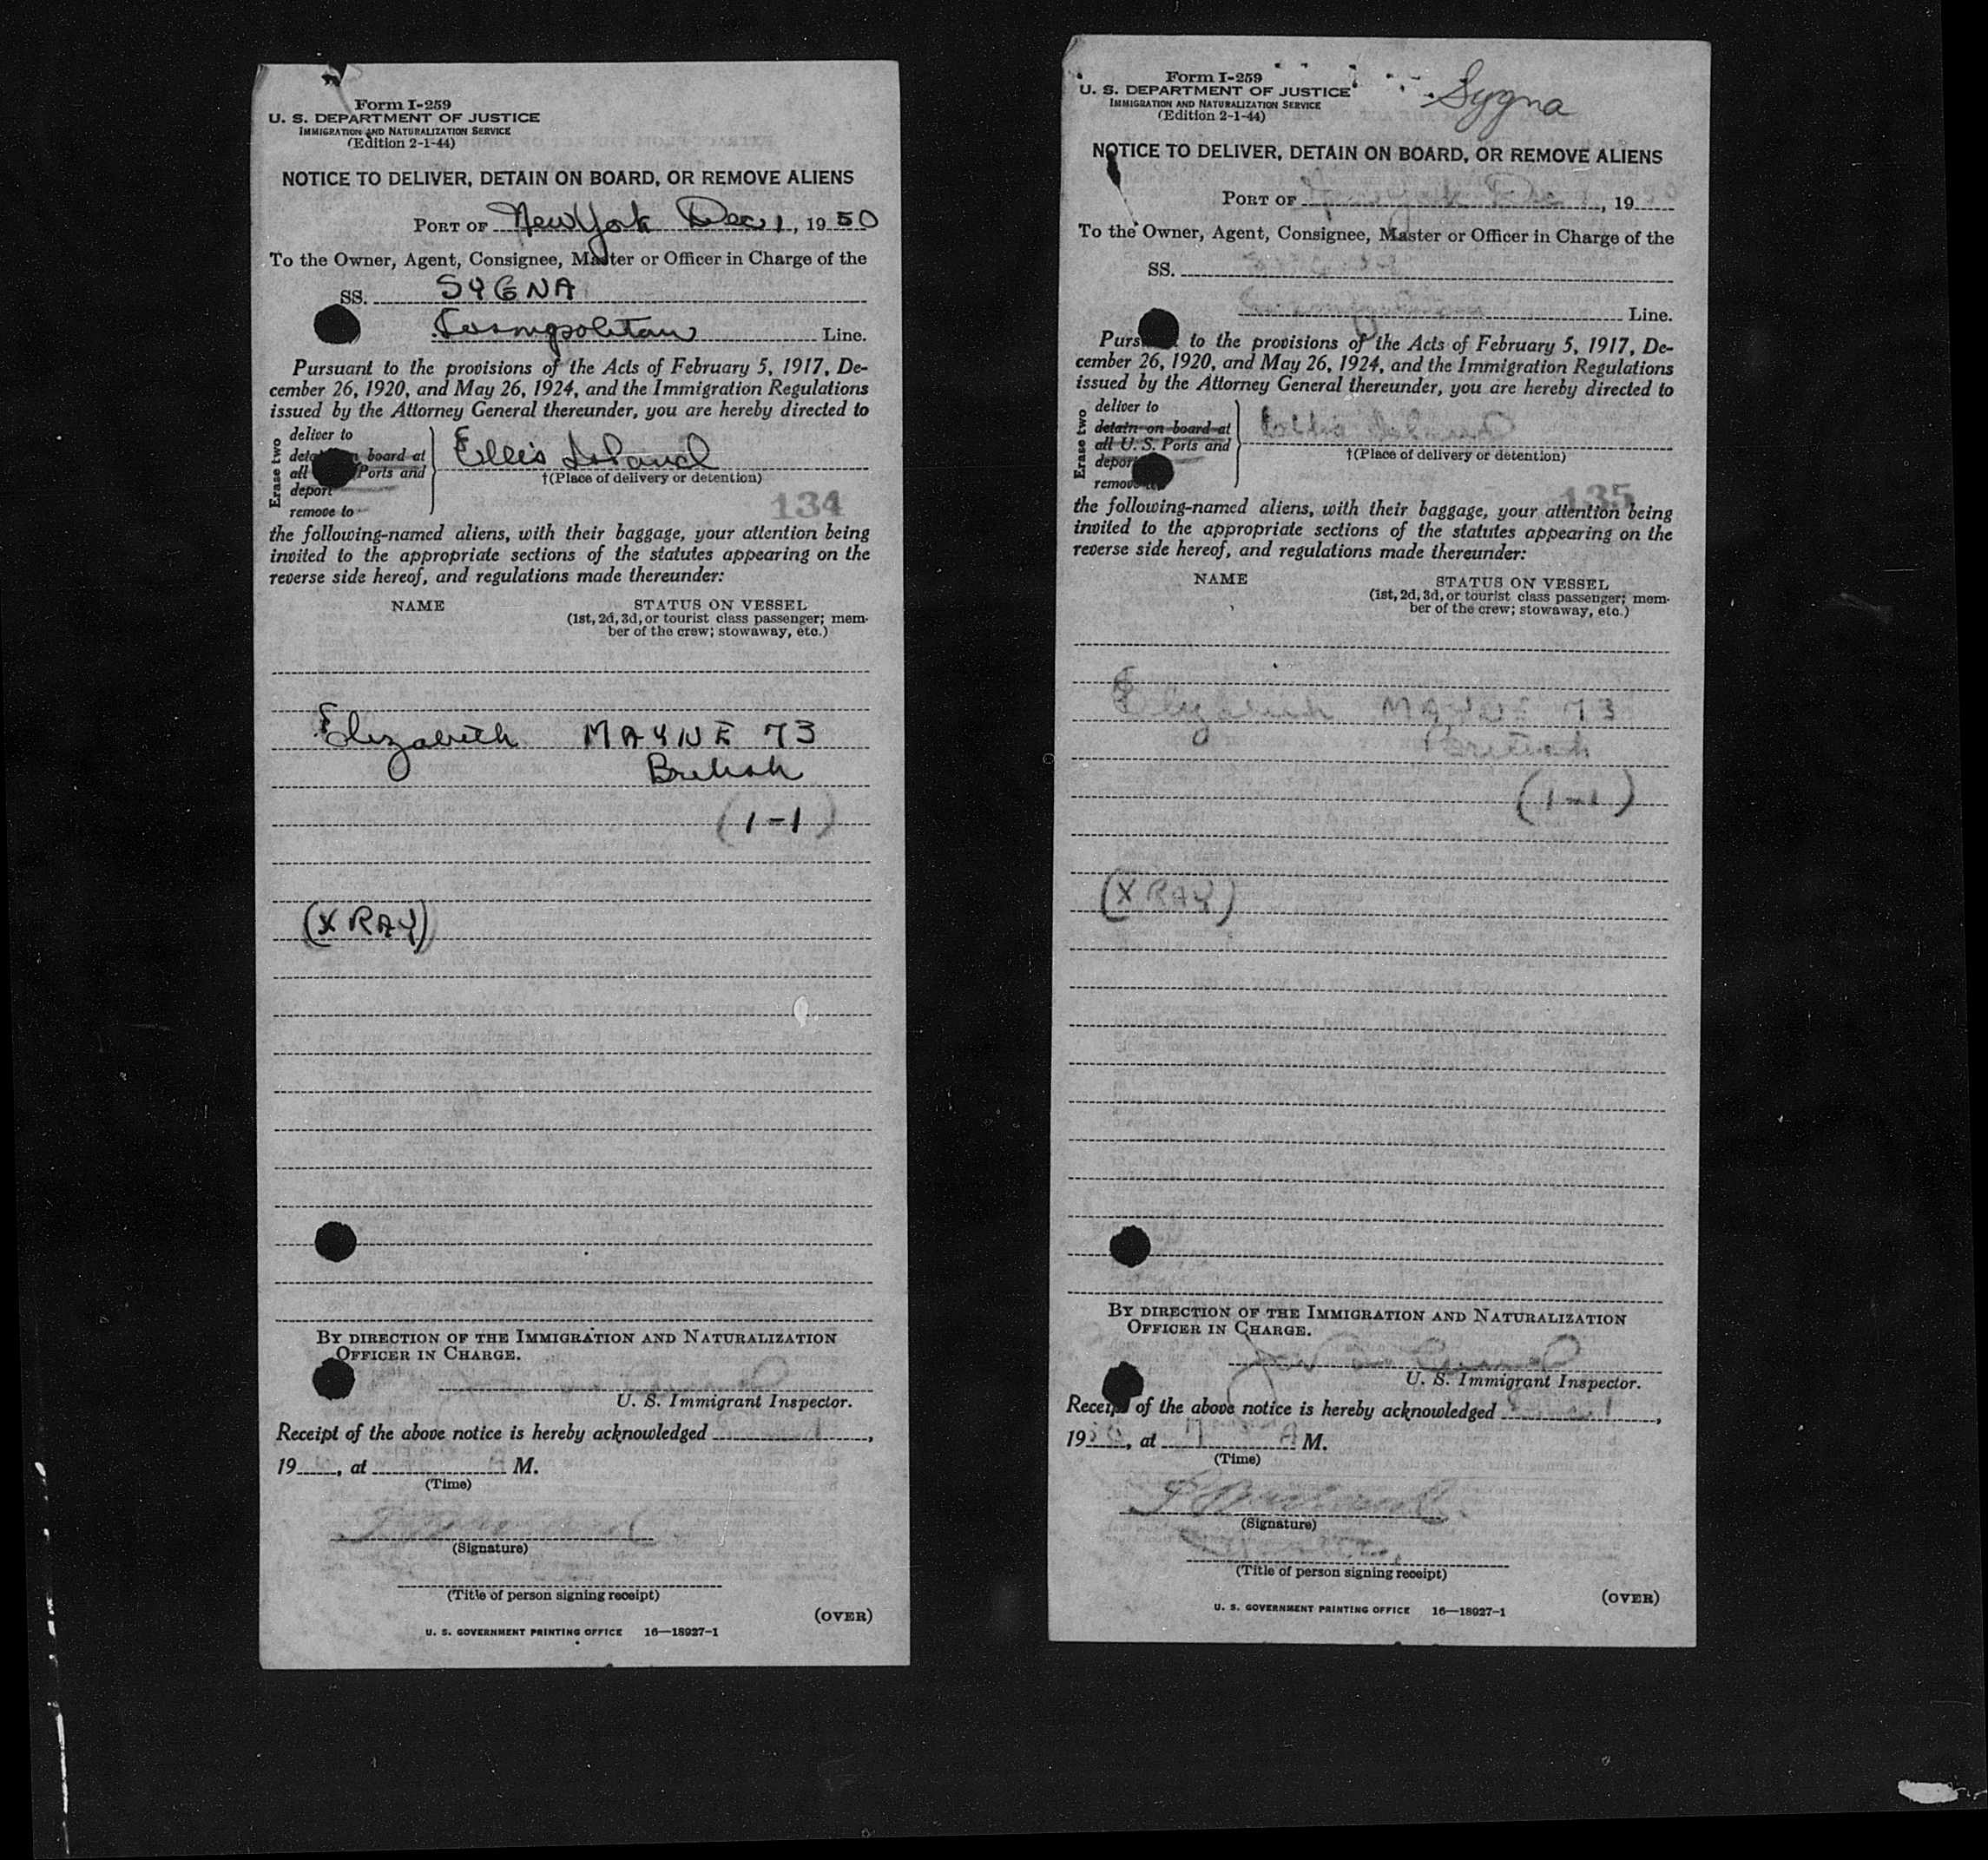 Form I-259
U. S. DEPARTMENT OF JUSTICE
IMMIGRATION AND NATURALIZATION SERVICE
(Edition 2-1-44)
NOTICE TO DELIVER, DETAIN ON BOARD, OR REMOVE ALIENS
PORT OF New York Dec 1, 1950
To the Owner, Agent, Consignee, Master or Officer in Charge of the
SS. SYGNA
Cosmopolitan Line.
Pursuant to the provisions of the Acts of February 5, 1917, De-
cember 26, 1920, and May 26, 1924, and the Immigration Regulations
issued by the Attorney General thereunder, you are hereby directed to
Erase two
deliver to
detain board at
all Ports and
deport
remove to
Ellis Island
†(Place of delivery or detention)
134
the following-named aliens, with their baggage, your attention being
invited to the appropriate sections of the statutes appearing on the
reverse side hereof, and regulations made thereunder:
NAME STATUS ON VESSEL
(1st, 2d, 3d, or tourist class passenger; mem-
ber of the crew; stowaway, etc.)
Elizabeth MAYNE 73
British
(1-1)
(X RAY)
BY DIRECTION OF THE IMMIGRATION AND NATURALIZATION
OFFICER IN CHARGE.
U. S. Immigrant Inspector.
Receipt of the above notice is hereby acknowledged
19 , at M.
(Time)
(Signature)
(Title of person signing receipt)
(OVER)
U. S. GOVERNMENT PRINTING OFFICE 16—18927-1
Form I-259
U. S. DEPARTMENT OF JUSTICE
IMMIGRATION AND NATURALIZATION SERVICE
(Edition 2-1-44)
Sygna
NOTICE TO DELIVER, DETAIN ON BOARD, OR REMOVE ALIENS
PORT OF New York Dec 1, 19
To the Owner, Agent, Consignee, Master or Officer in Charge of the
SS.
Line.
Pursuant to the provisions of the Acts of February 5, 1917, De-
cember 26, 1920, and May 26, 1924, and the Immigration Regulations
issued by the Attorney General thereunder, you are hereby directed to
Erase two
deliver to
detain on board at
all U. S. Ports and
deport
remove to
Ellis Island
†(Place of delivery or detention)
135
the following-named aliens, with their baggage, your attention being
invited to the appropriate sections of the statutes appearing on the
reverse side hereof, and regulations made thereunder:
NAME STATUS ON VESSEL
(1st, 2d, 3d, or tourist class passenger; mem-
ber of the crew; stowaway, etc.)
Elizabeth MAYNE 73
British
(1-1)
(X RAY)
BY DIRECTION OF THE IMMIGRATION AND NATURALIZATION
OFFICER IN CHARGE.
U. S. Immigrant Inspector.
Receipt of the above notice is hereby acknowledged Dec 1,
1950, at A M.
(Time)
(Signature)
(Title of person signing receipt)
(OVER)
U. S. GOVERNMENT PRINTING OFFICE 16—18927-1